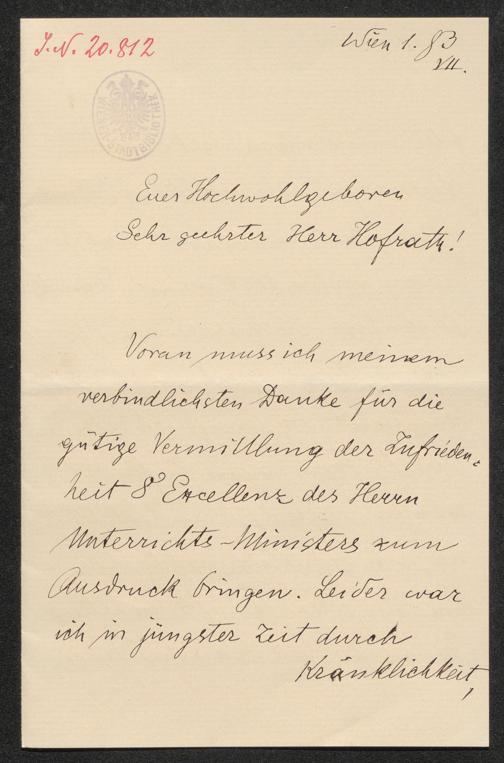 J.N. 20.812
Wien 1. 83
VII.
Euer Hochwohlgeboren
Sehr geehrter Herr Hofrath!
Voran muss ich meinem
verbindlichsten Danke für die
gütige Vermittlung der Zufrieden-
heit Sr Excellenz des Herrn
Unterrichts-Ministers zum
Ausdruck bringen. Leider war
ich in jüngster Zeit durch
Kränklichkeit,